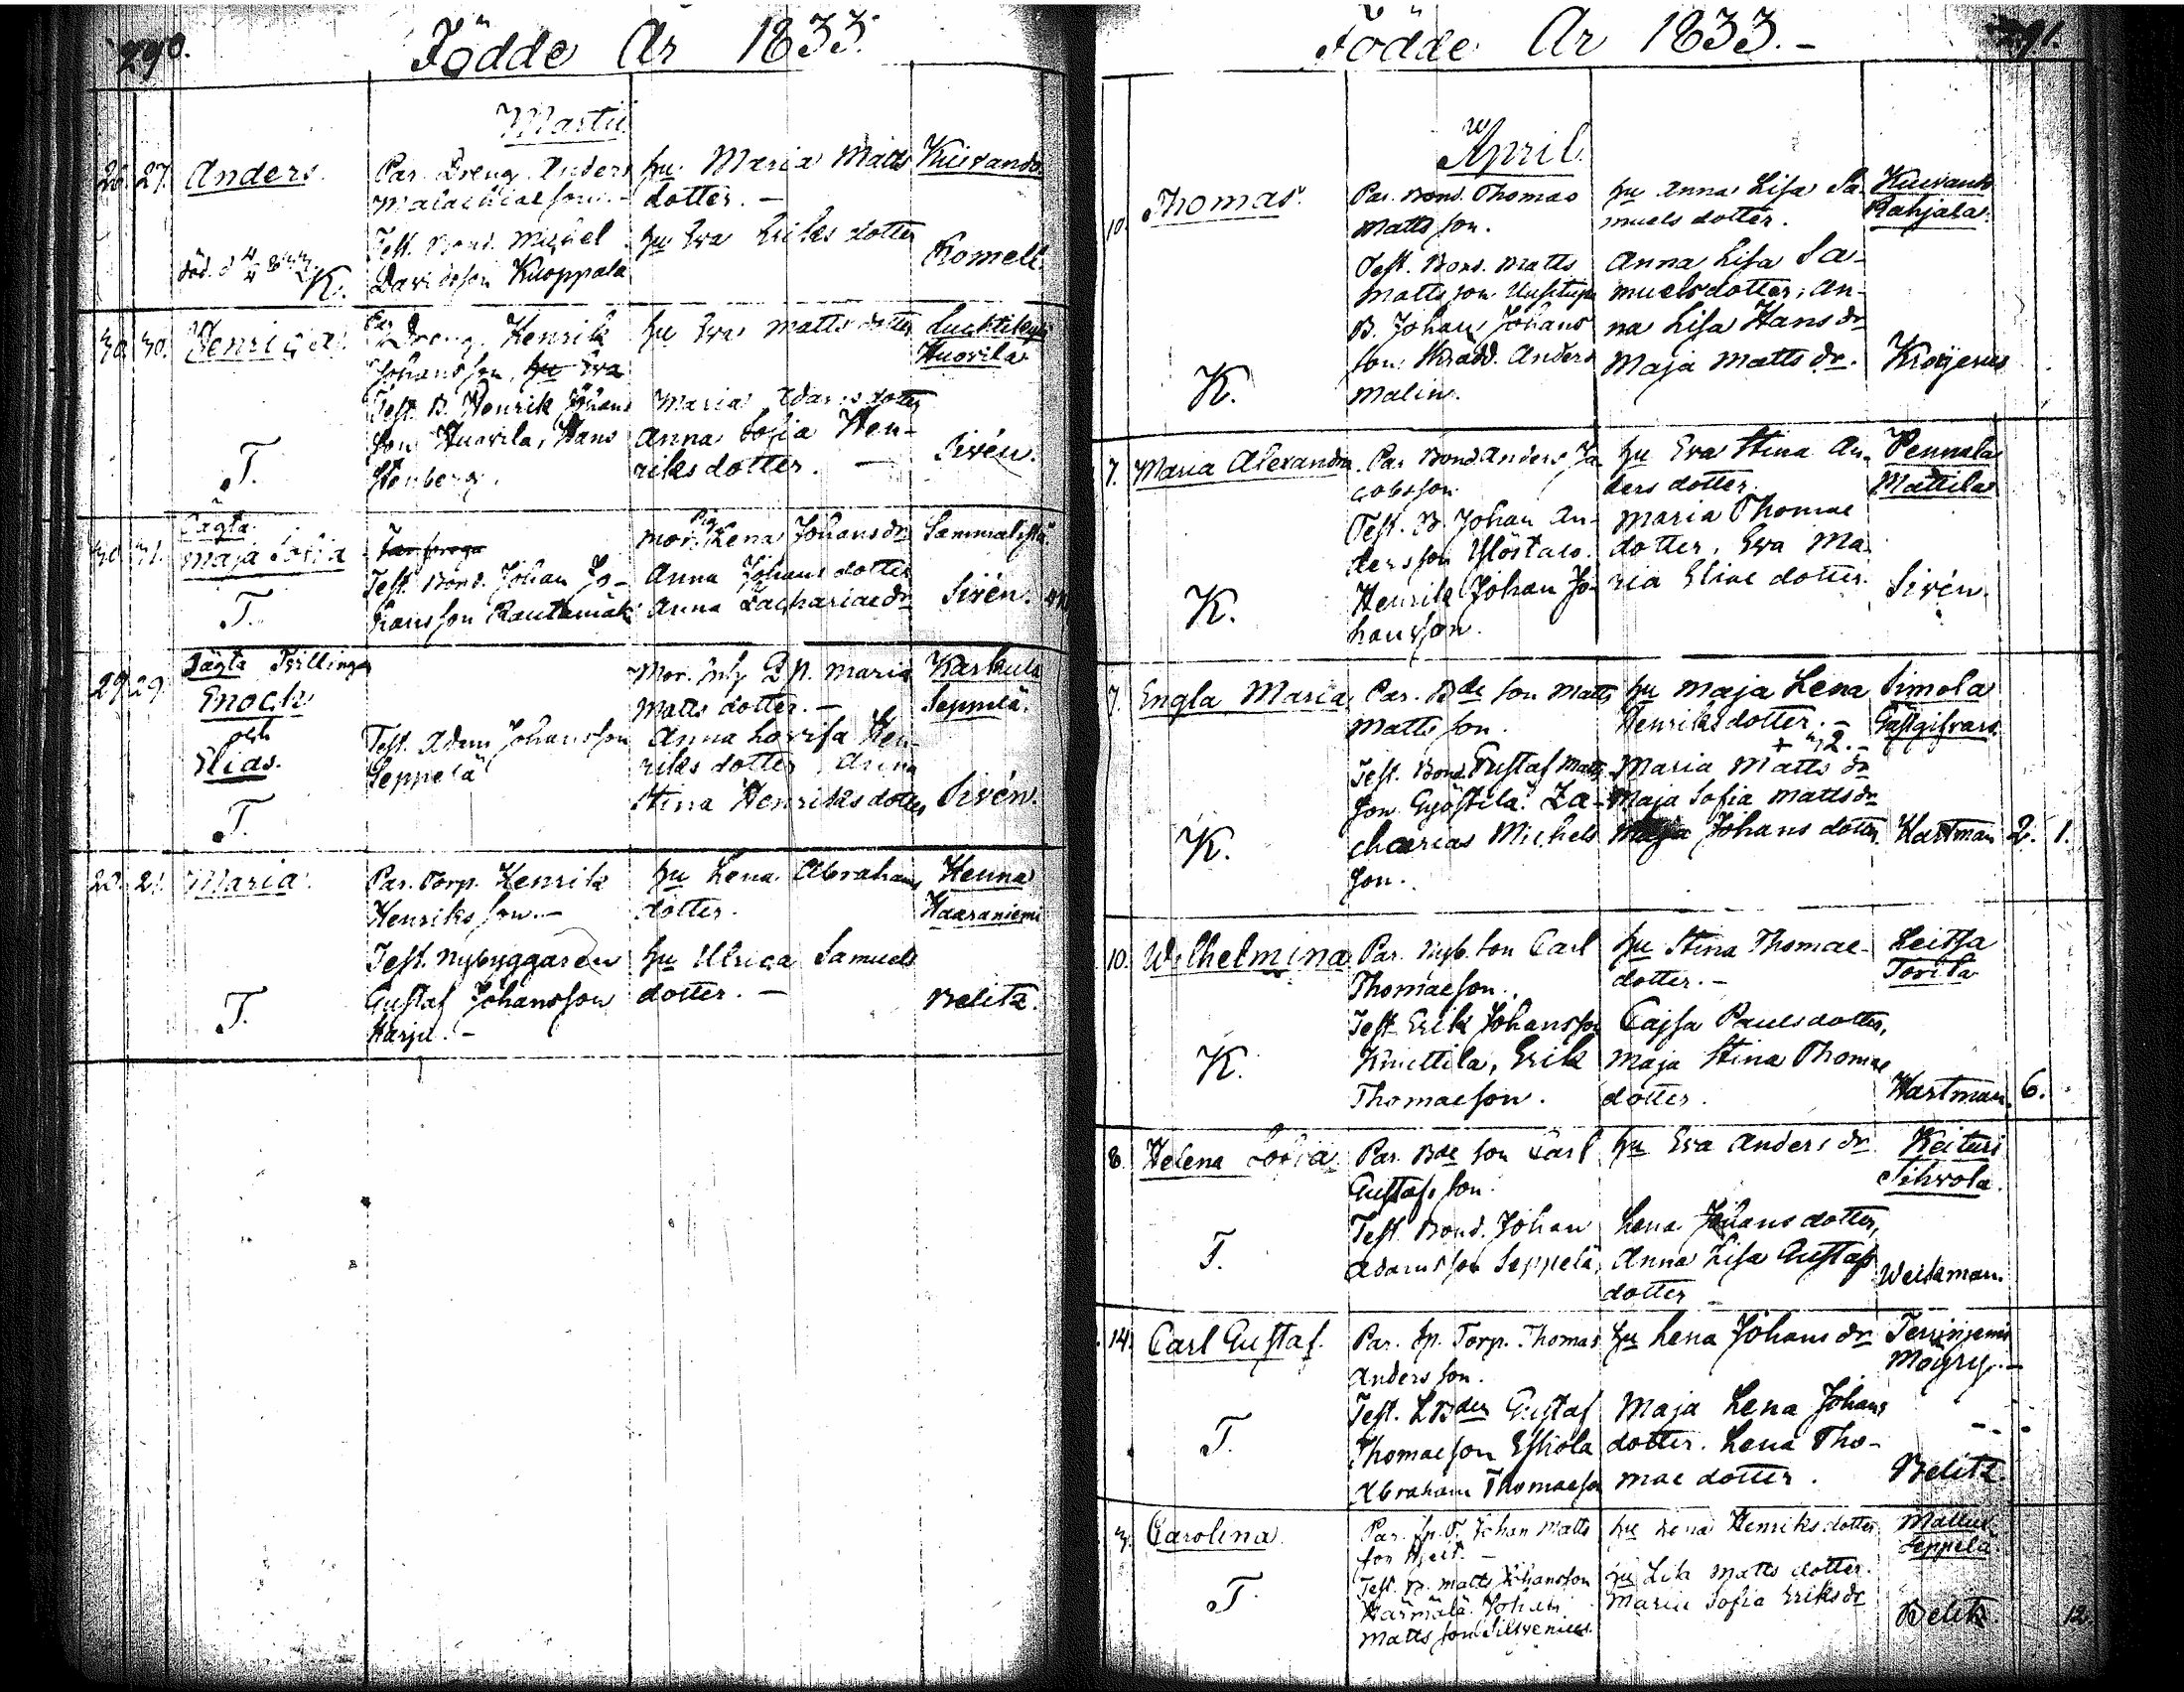 290.
Födde År 1833.
Martii
26. 27. Anders. Par. Dreng. Anders hu Maria Matts Kuivando.
Malachiaesson. - dotter. -
Test. Bond. Michel hu Eva Eriks dotter
död d 4/4 833 K. Davidsson Kuoppala Homell.
30. 30. Henrica. Par. Dreng. Henrik hu Eva Matts dotter Luhtikylä
Johansson, hu Eva Huovila
Test. B. Henrik Johans Maria Adams dotter
son Huovila, Hans Anna Sofia Hen-
T. Stenberg. riks dotter. - Sirén.
Oägta
30. 31. Maja Sofia Mor. Pig. Lena Johans dr Sammalisto.
Test. Bond. Johan Jo- Anna Johans dotter
T. hansson Rautamäki Anna Zachariae dr Sirén.
Oägta Tvillingar
29. 29. Enoch Mor. Inh. Maria Karkula
och Matts dotter. - Seppelä.
Elias. Test. Adam Johansson Anna Lovisa Hen-
Seppelä riks dotter, Anna
T. Stina Henriks dotter Sirén.
20. 21. Maria. Par. Torp. Henrik hu Lena Abrahams Heinna
Henriks son. - dotter. Haaraniemi
Test. Nybyggaren hu Ulrica Samuels
T. Gustaf Johansson dotter. - Belitz.
Harju. -
291.
Födde År 1833. -
April
10. Thomas. Par. Bond. Thomas hu Anna Lisa Sa- Kuivando
Matts son. muels dotter. Rahjala.
Test. Bond. Matts Anna Lisa Sa-
Matts son Uusitupa muelsdotter, An-
B. Johan Johans na Lisa Hans dr
son. Skrädd. Anders Maja Matts dr. Krogerus
K. Malin.
7. Maria Alexandra. Par Bond Anders Ja- hu Eva Stina An- Pennala
cobsson ders dotter. Mattila
Test. B. Johan An- Maria Thomae
dersson Ylöstalo. dotter, Eva Ma-
K. Henrik Johan Jo- ria Eliae dotter. Sirén.
hansson.
7. Engla Maria. Par. Bde son Matts hu Maja Lena Simola
Matts son. Henriks dotter. - Gästgifvars.
+ 32. -
Test. Bond. Gustaf Matts Maria Matts dr
son Gyöstilä. Za- Maja Sofia Matts dr
K. charias Michels Maja Johans dotter. Hartman 2. 1.
son.
10. Wilhelmina Par. Nyb. son Carl hu Stina Thomae- Keitsa
Thomaeson. dotter. - Torila
Test. Erik Johansson Cajsa Paulsdotter,
K. Knittila, Erik Maja Stina Thomae
Thomaeson. dotter. Hartman. 6.
8. Helena Sofia Par. Bde son Carl hu Eva Anders dr Keituri
Gustafs son. Sihvola.
Test. Bond. Johan Lena Johans dotter,
T. Adamsson Seppelä, Anna Lisa Gustafs
dotter - Weckman.
14. Carl Gustaf. Par. Sp. Torp. Thomas hu Lena Johans dr
Anders son. Möyry. -
Test. LBder Gustaf Maja Lena Johans
T. Thomaeson Eskola dotter. Lena Tho-
Abraham Thomaeson mae dotter. Belitz
3. Carolina Par. Sp. T. Johan Matts hu Lena Henriks dotter Mallus.
son Seppelä
Test. B. Matts Johansson hu Lisa Matts dotter.
T. Härmälä. Johan Maria Sofia Eriks dr
Matts son Silvenius. Belitz. 12.